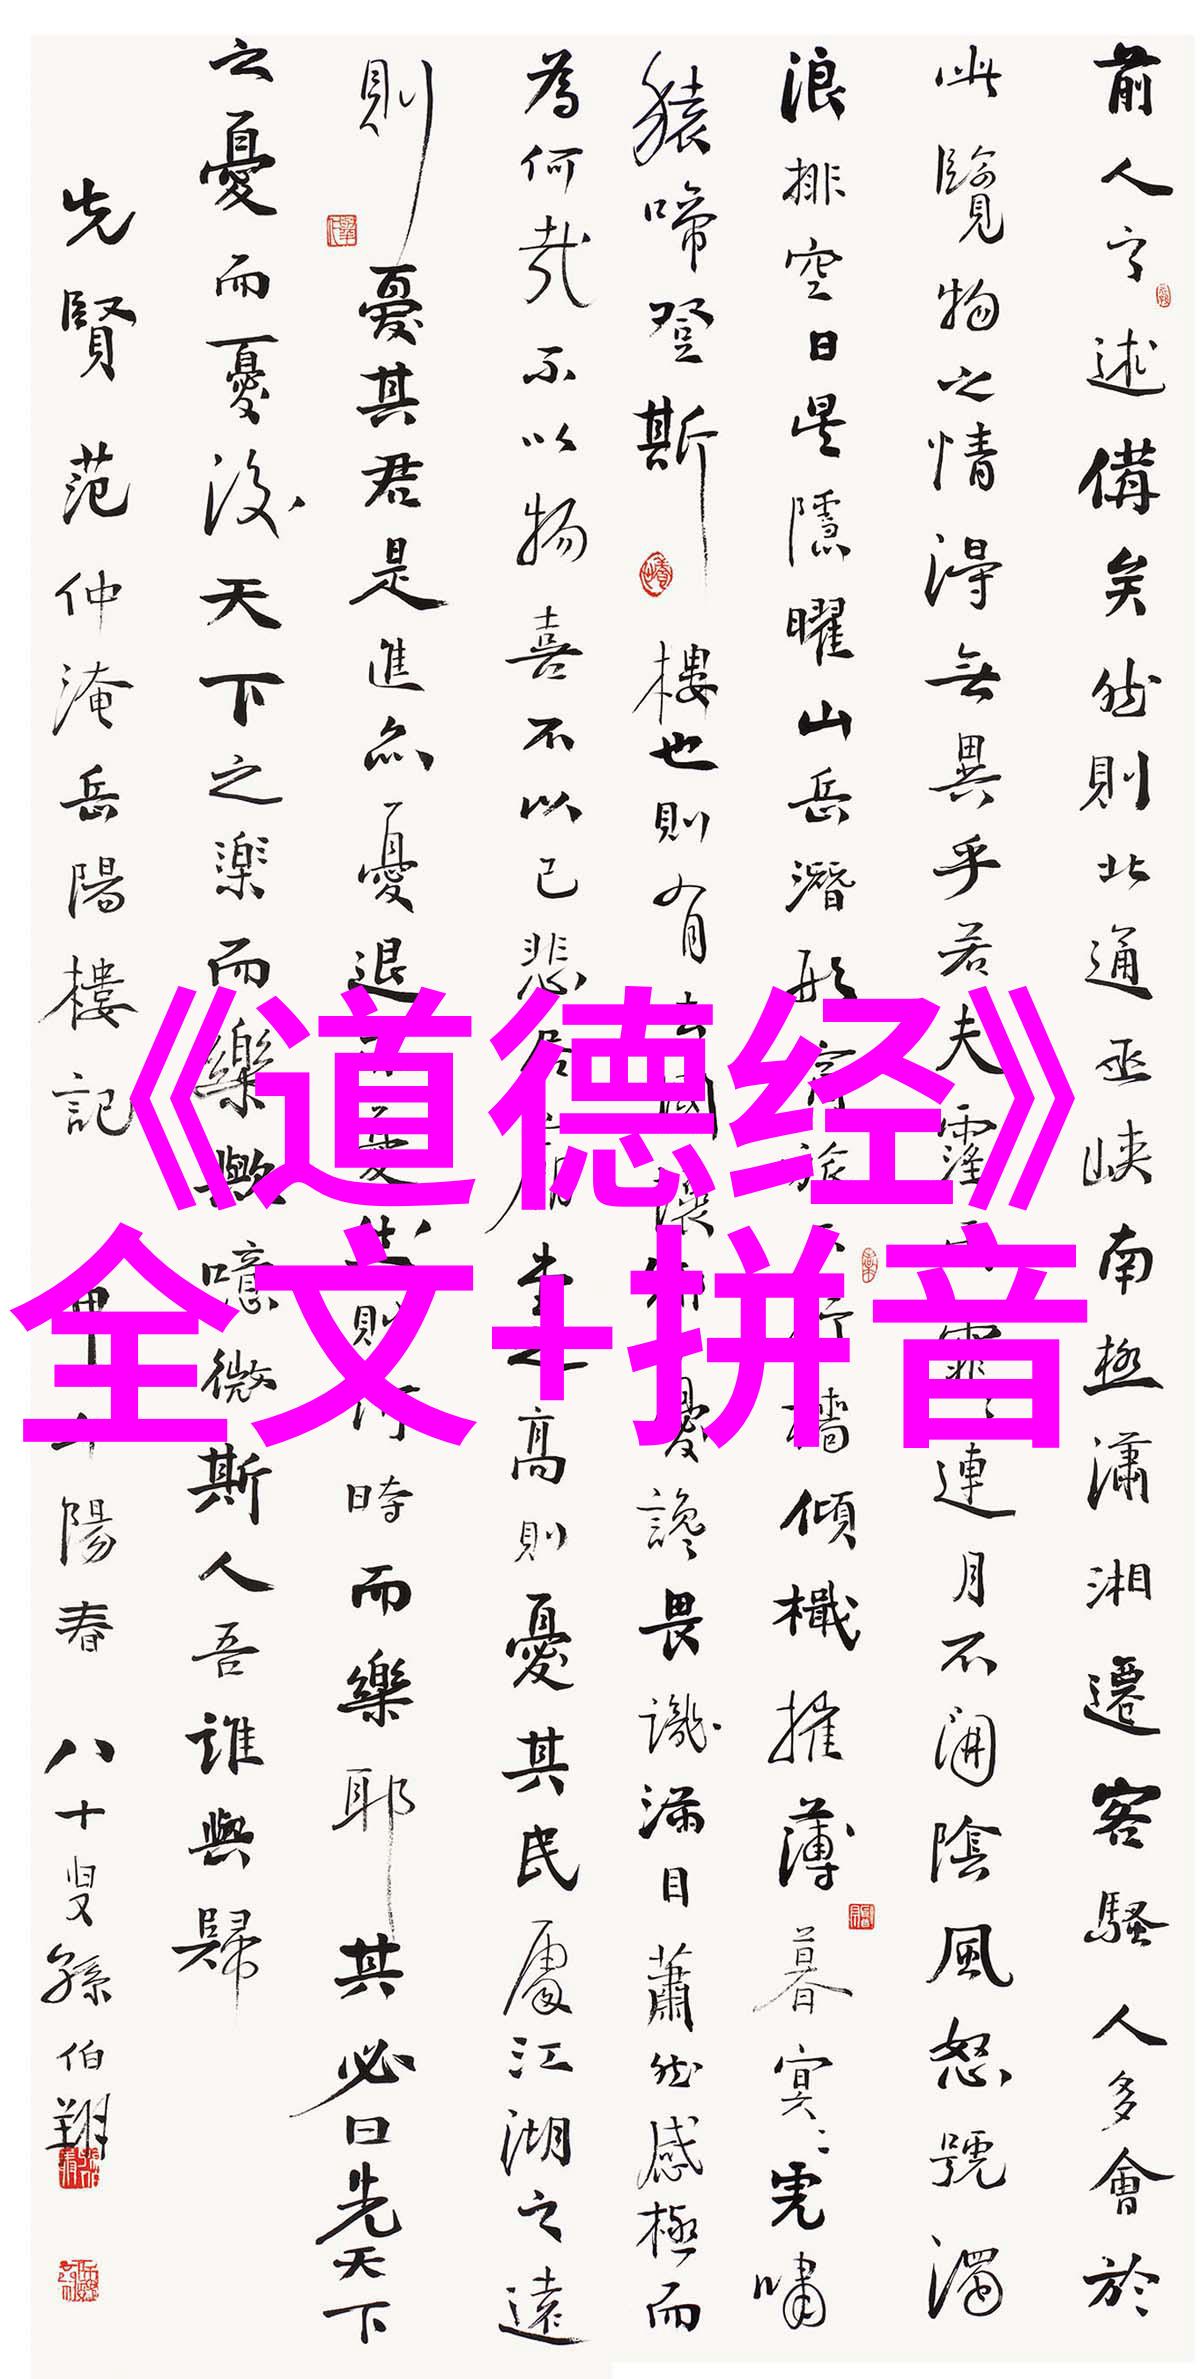 《道德经》
全文+拼音
前人之述備矣然則北通巫峽南極瀟湘遷客騷人多會於
此覽物之情得無異乎若夫霪雨霏〻連月不開陰風怒號濁
浪排空日星隱曜山岳潛形商旅不行檣傾檝摧薄暮冥〻虎嘯
猿啼登斯樓也則有去國懷鄉憂讒畏譏滿目蕭然感極而
為何哉不以物喜不以己悲居廟堂之高則憂其民處江湖之遠
則憂其君是進亦憂退亦憂然則何時而樂耶其必曰先天下
之憂而憂後天下之楽而樂歟噫微斯人吾誰與歸
先賢范仲淹岳陽樓記 甲午陽春 八十叟孫伯翔